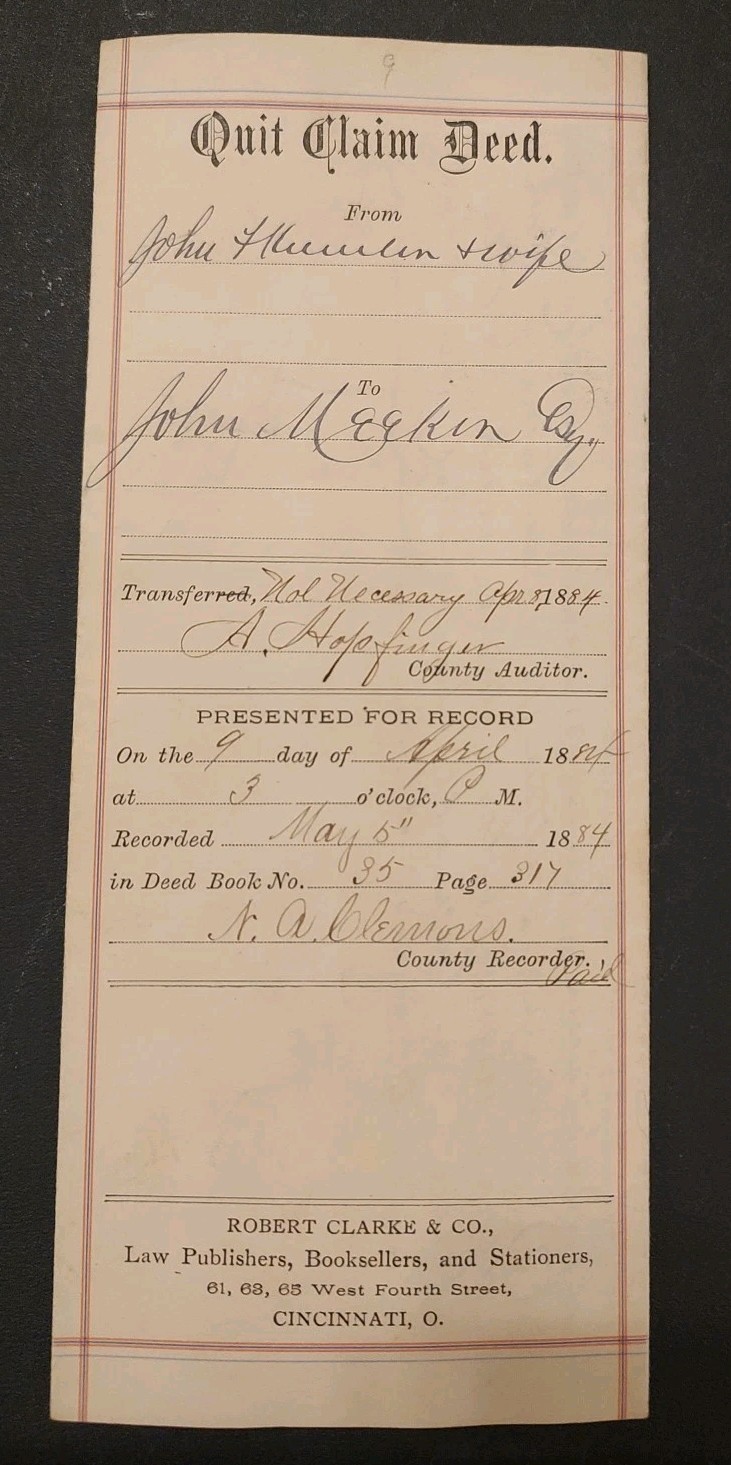 9
Quit Claim Deed.
From
John & wife
To
John Meekin Esq.
Transferred, Not Necessary Apr 8, 1884.
A. Hopfinger
County Auditor.
PRESENTED FOR RECORD
On the 9 day of April 1884
at 3 o'clock, P M.
Recorded May 5" 1884
in Deed Book No. 35 Page 317
N. A. Clemons.
County Recorder.
Paid
ROBERT CLARKE & CO.,
Law Publishers, Booksellers, and Stationers,
61, 63, 65 West Fourth Street,
CINCINNATI, O.